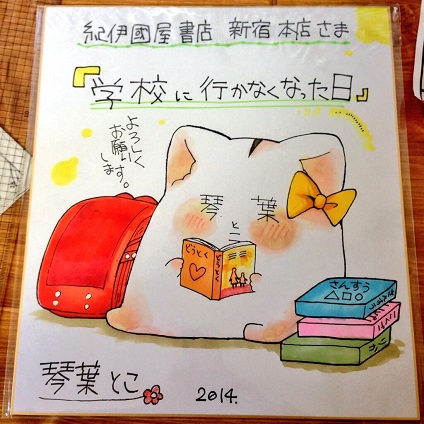 紀伊國屋書店 新宿本店さま
『学校に行かなくなった日』
よろしく
お願い
します。
琴葉
とこ
どうとく
どうとく
さんすう
△□○
琴葉とこ
2014.